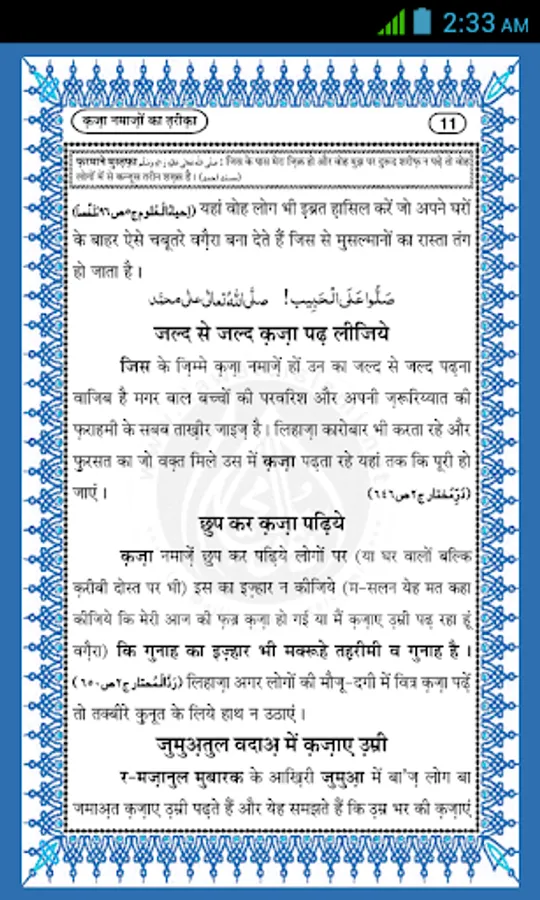 2:33 AM
क़ज़ा नमाज़ों का त़रीक़ा
11
फ़रमाने मुस्त़फ़ा صلى الله تعالى عليه واله وسلم : जिस के पास मेरा ज़िक्र हो और वोह मुझ पर दुरूद शरीफ़ न पढ़े तो वोह
लोगों में से कन्जूस तरीन शख़्स है। (مسند احمد)
(اِحیاءُ الْعُلوم ج ٥ ص ٩٦ مُلَخَّصاً) यहां वोह लोग भी इब्रत ह़ासिल करें जो अपने घरों
के बाहर ऐसे चबूतरे वग़ैरा बना देते हैं जिस से मुसल्मानों का रास्ता तंग
हो जाता है।
صَلُّوا عَلَى الْحَبِيب! صلَّى اللّٰهُ تعالٰى على محمَّد
जल्द से जल्द क़ज़ा पढ़ लीजिये
जिस के ज़िम्मे क़ज़ा नमाज़ें हों उन का जल्द से जल्द पढ़ना
वाजिब है मगर बाल बच्चों की परवरिश और अपनी ज़रूरिय्यात की
फ़राहमी के सबब ताख़ीर जाइज़ है। लिहाज़ा कारोबार भी करता रहे और
फ़ुरसत का जो वक़्त मिले उस में क़ज़ा पढ़ता रहे यहां तक कि पूरी हो
जाएं। (دُرِّمُختار ج ٢ ص ٦٤٦)
छुप कर क़ज़ा पढ़िये
क़ज़ा नमाज़ें छुप कर पढ़िये लोगों पर (या घर वालों बल्कि
क़रीबी दोस्त पर भी) इस का इज़्हार न कीजिये (म-सलन येह मत कहा
कीजिये कि मेरी आज की फ़ज्र क़ज़ा हो गई या मैं क़ज़ाए उ़म्री पढ़ रहा हूं
वग़ैरा) कि गुनाह का इज़्हार भी मक्रूहे तह़रीमी व गुनाह है।
(رَدُّالْمُحتار ج ٢ ص ٦٥٠) लिहाज़ा अगर लोगों की मौजू-दगी में वित्र क़ज़ा पढ़ें
तो तक्बीरे क़ुनूत के लिये हाथ न उठाएं।
जुमुअ़तुल वदाअ़ में क़ज़ाए उ़म्री
र-मज़ानुल मुबारक के आख़िरी जुमुआ़ में बा'ज़ लोग बा
जमाअ़त क़ज़ाए उ़म्री पढ़ते हैं और येह समझते हैं कि उ़म्र भर की क़ज़ाएं